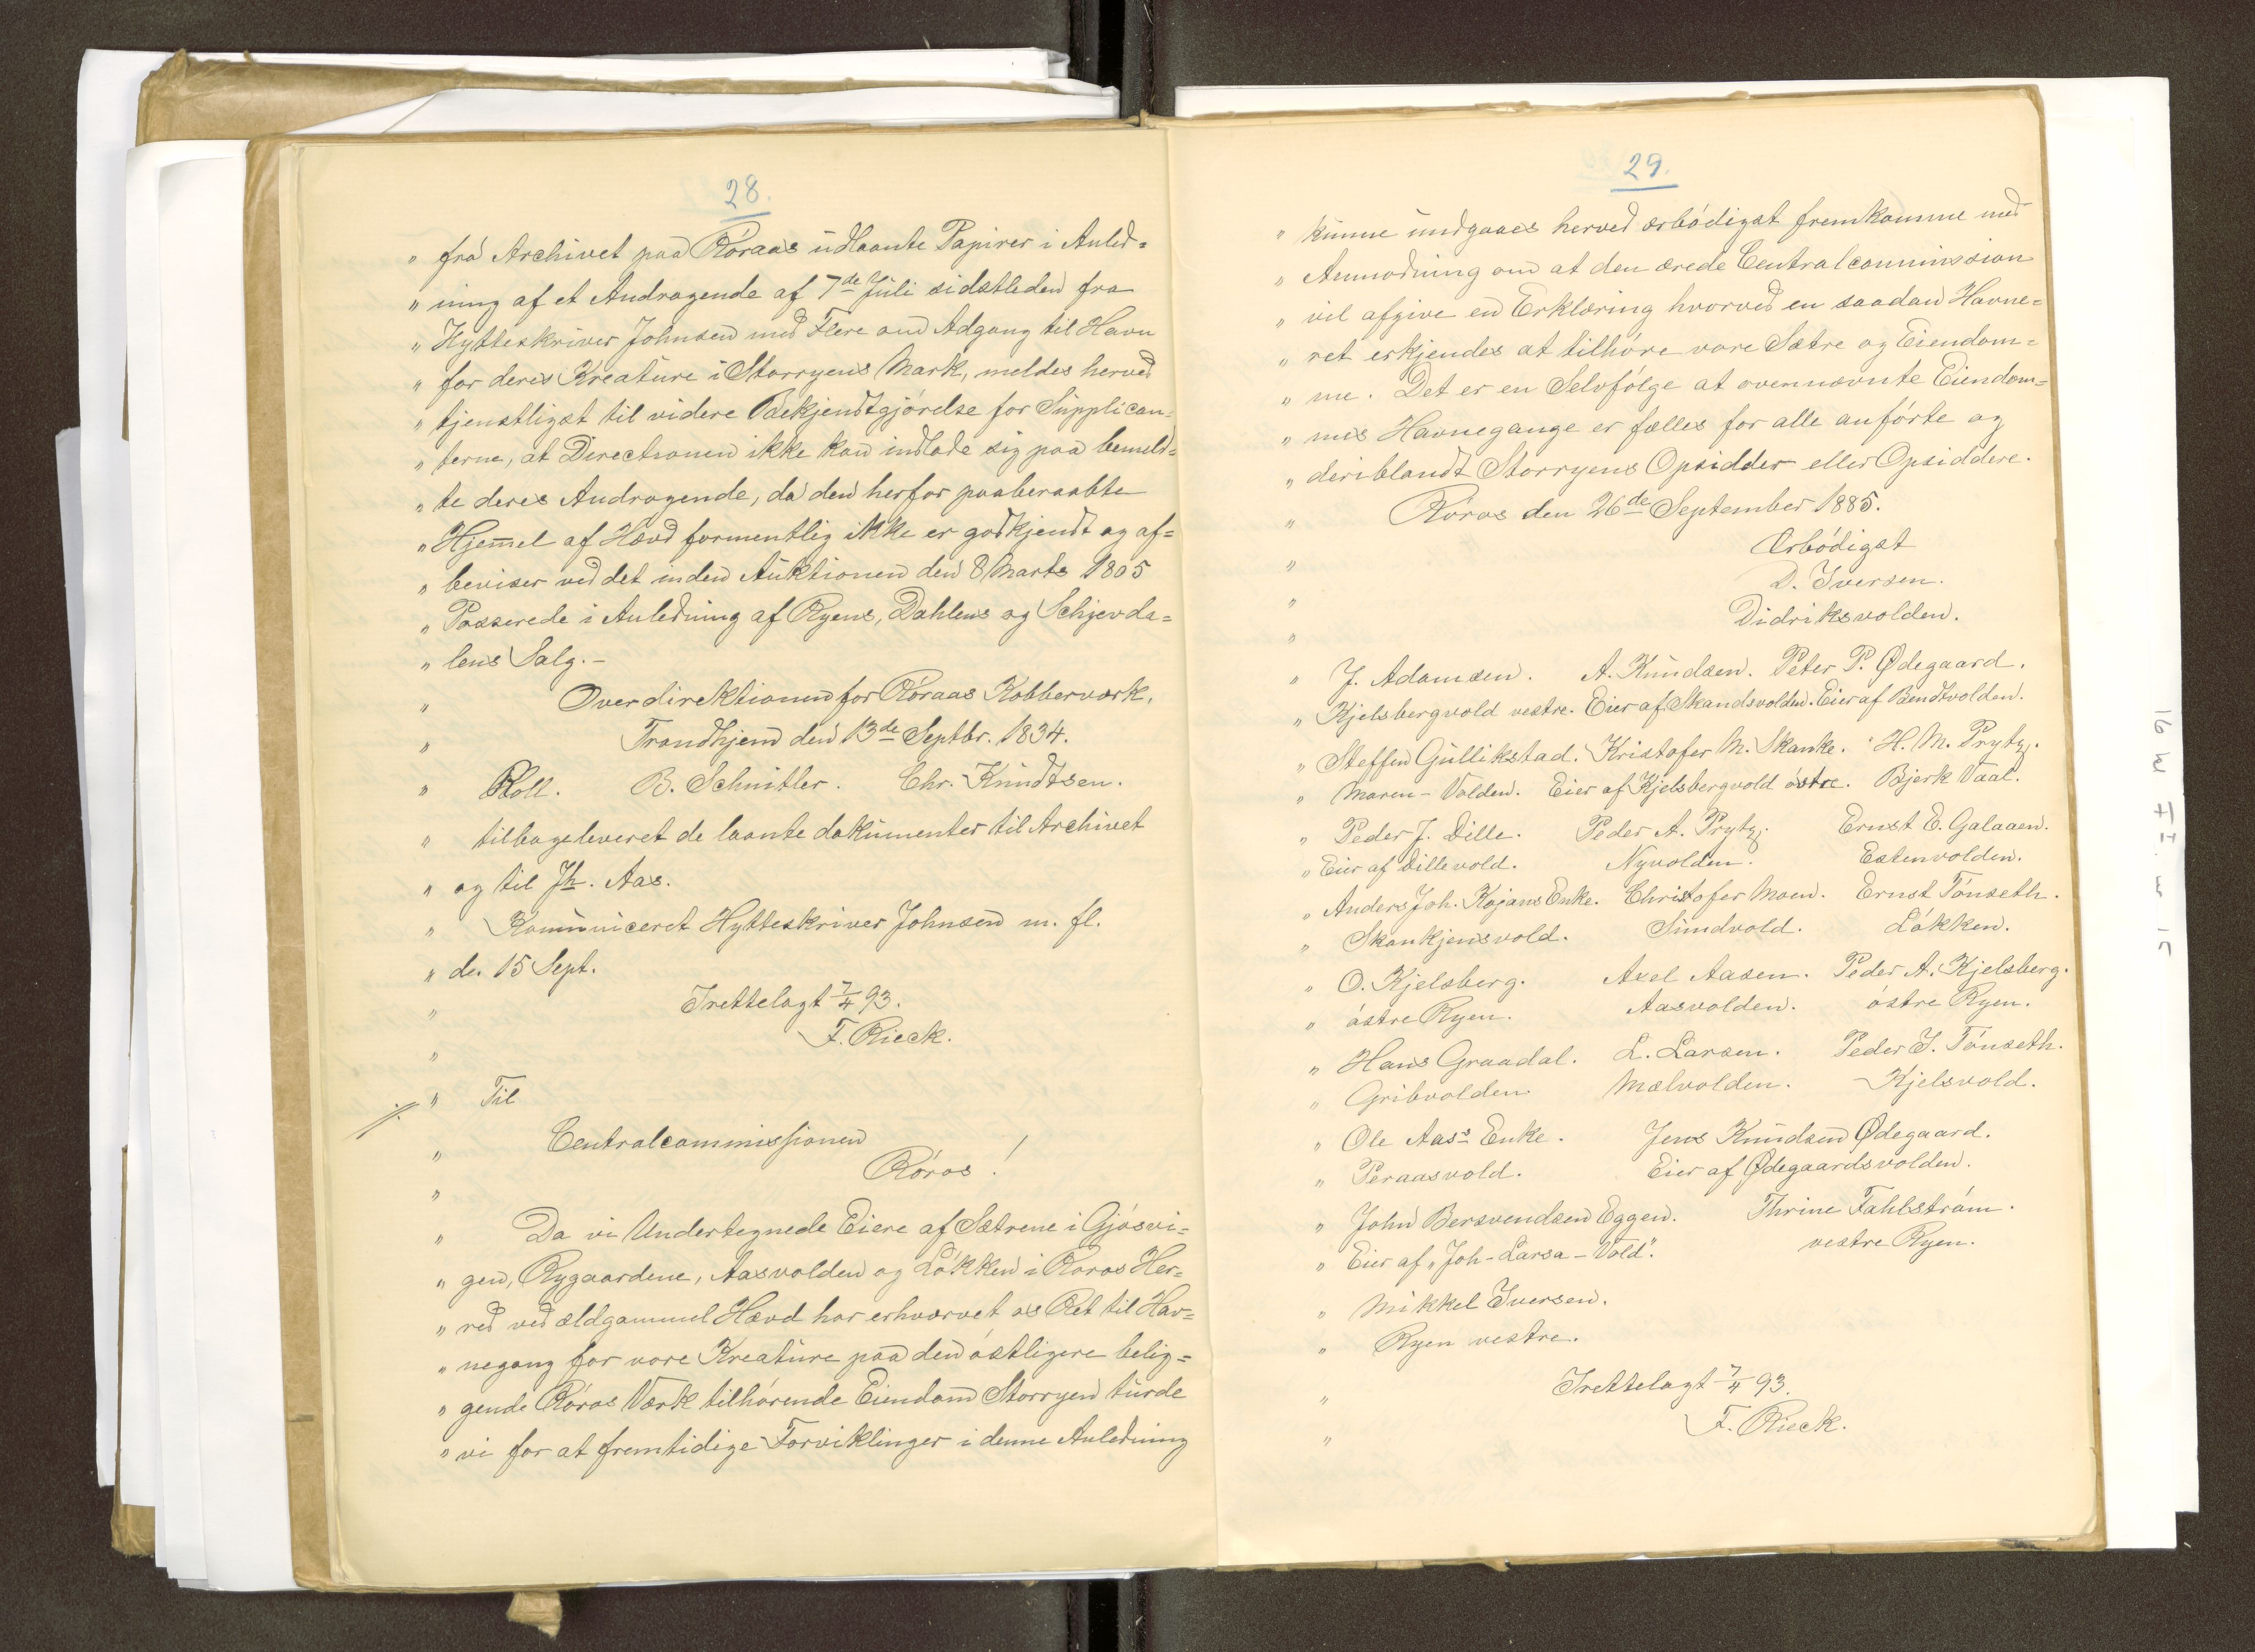 28.
" fra Archivet paa Röraas udlaante Papirer i Anled=
" ning af et Andragende af 7de Juli sidstleden fra
" Hytteskriver Johnsen med Flere om Adgang til Havn
" for deres Kreature i Storryens Mark, meldes herved
" tjenstligst til videre Bekjendtgjörelse for Supplican=
" terne, at Directionen ikke kan indlade sig paa bemeld=
" te deres Andragende, da den herfor paaberaabte
" Hjem̄el af Hævd formentlig ikke er godkjendt og af=
" beviser ved det inden Auktionen den 8 Marts 1805
" Passerede i Anledning af Ryens, Dahlens og Schjevda=
" lens Salg.-
" Overdirektionen for Röraas Kobberværk,
" Trondhjem den 13de Septbr. 1834.
" Roll. B. Schnitler. Chr. Knudtsen.
" tilbageleveret de laante dokumenter til Archivet
" og til Jh. Aas.
" Kom̄uniceret Hytteskriver Johnsen m. fl.
" de. 15 Sept.
" Irettelagt 7/4 93.
" F. Rieck.
" Til
" Centralcommissionen
" Röros!
" Da vi Undertegnede Eiere af Sætrene i Gjösvi=
" gen, Rygaardene, Aasvolden og Lökken i Roros Her=
" red ved ældgammel Hævd har erhvervet os Ret til Hav=
" negang for vore Kreature paa den östligere belig=
" gende Röros Værk tilhörende Eiendom Storryen turde
" vi for at fremtidige Forviklinger i denne Anledning
29.
" kunne undgaaes herved ærbödigst fremkomme med
" Anmodning om at den ærede Centralcommission
" vil afgive en Erklæring hvorved en saadan Havne=
" ret erkjendes at tilhöre vore Sætre og Eiendom=
" me. Det er en Selvfölge at ovennævnte Eiendom=
" mes Havnegange er fælles for alle anförte og
" deriblandt Storryens Opsidder eller Opsiddere.
" Röros den 26de September 1885.
" Ærbödigst
" D. Iversen.
" Didriksvolden.
" J. Adamsen. A. Knudsen. Peter P. Ødegaard.
" Kjelsbergvold vestre. Eier af Skandsvolden. Eier af Bendtvolden.
" Steffen Gullikstad. Kristofer M. Skanke. H. M. Prytz.
" Maren-Volden. Eier af Kjelsbergvold östre. Bjerk Vaal.
" Peder J. Dille. Peder A. Prytz. Ernst E. Galaaen.
" Eier af Dillevold. Nyvolden. Estenvolden.
" Anders Joh. Kojans Enke. Christofer Moen. Ernst Tönseth.
" Skankjensvold. Sundvold. Lökken.
" O. Kjelsberg. Axel Aasen. Peder A. Kjelsberg.
" östre Ryen. Aasvolden. östre Ryen.
" Hans Graadal. L. Larsen. Peder J. Tönseth.
" Gribvolden Mælvolden. Kjelsvold.
" Ole Aass Enke. Jens Knudsen Ødegaard.
" Peraasvold. Eier af Ødegaardsvolden.
" John Bersvendsen Eggen. Thrine Fahlström.
" Eier af „Joh-Larsa-Vold". vestre Ryen.
" Mikkel Iversen.
" Ryen vestre.
" Irettelagt 7/4 93.
" F. Rieck.